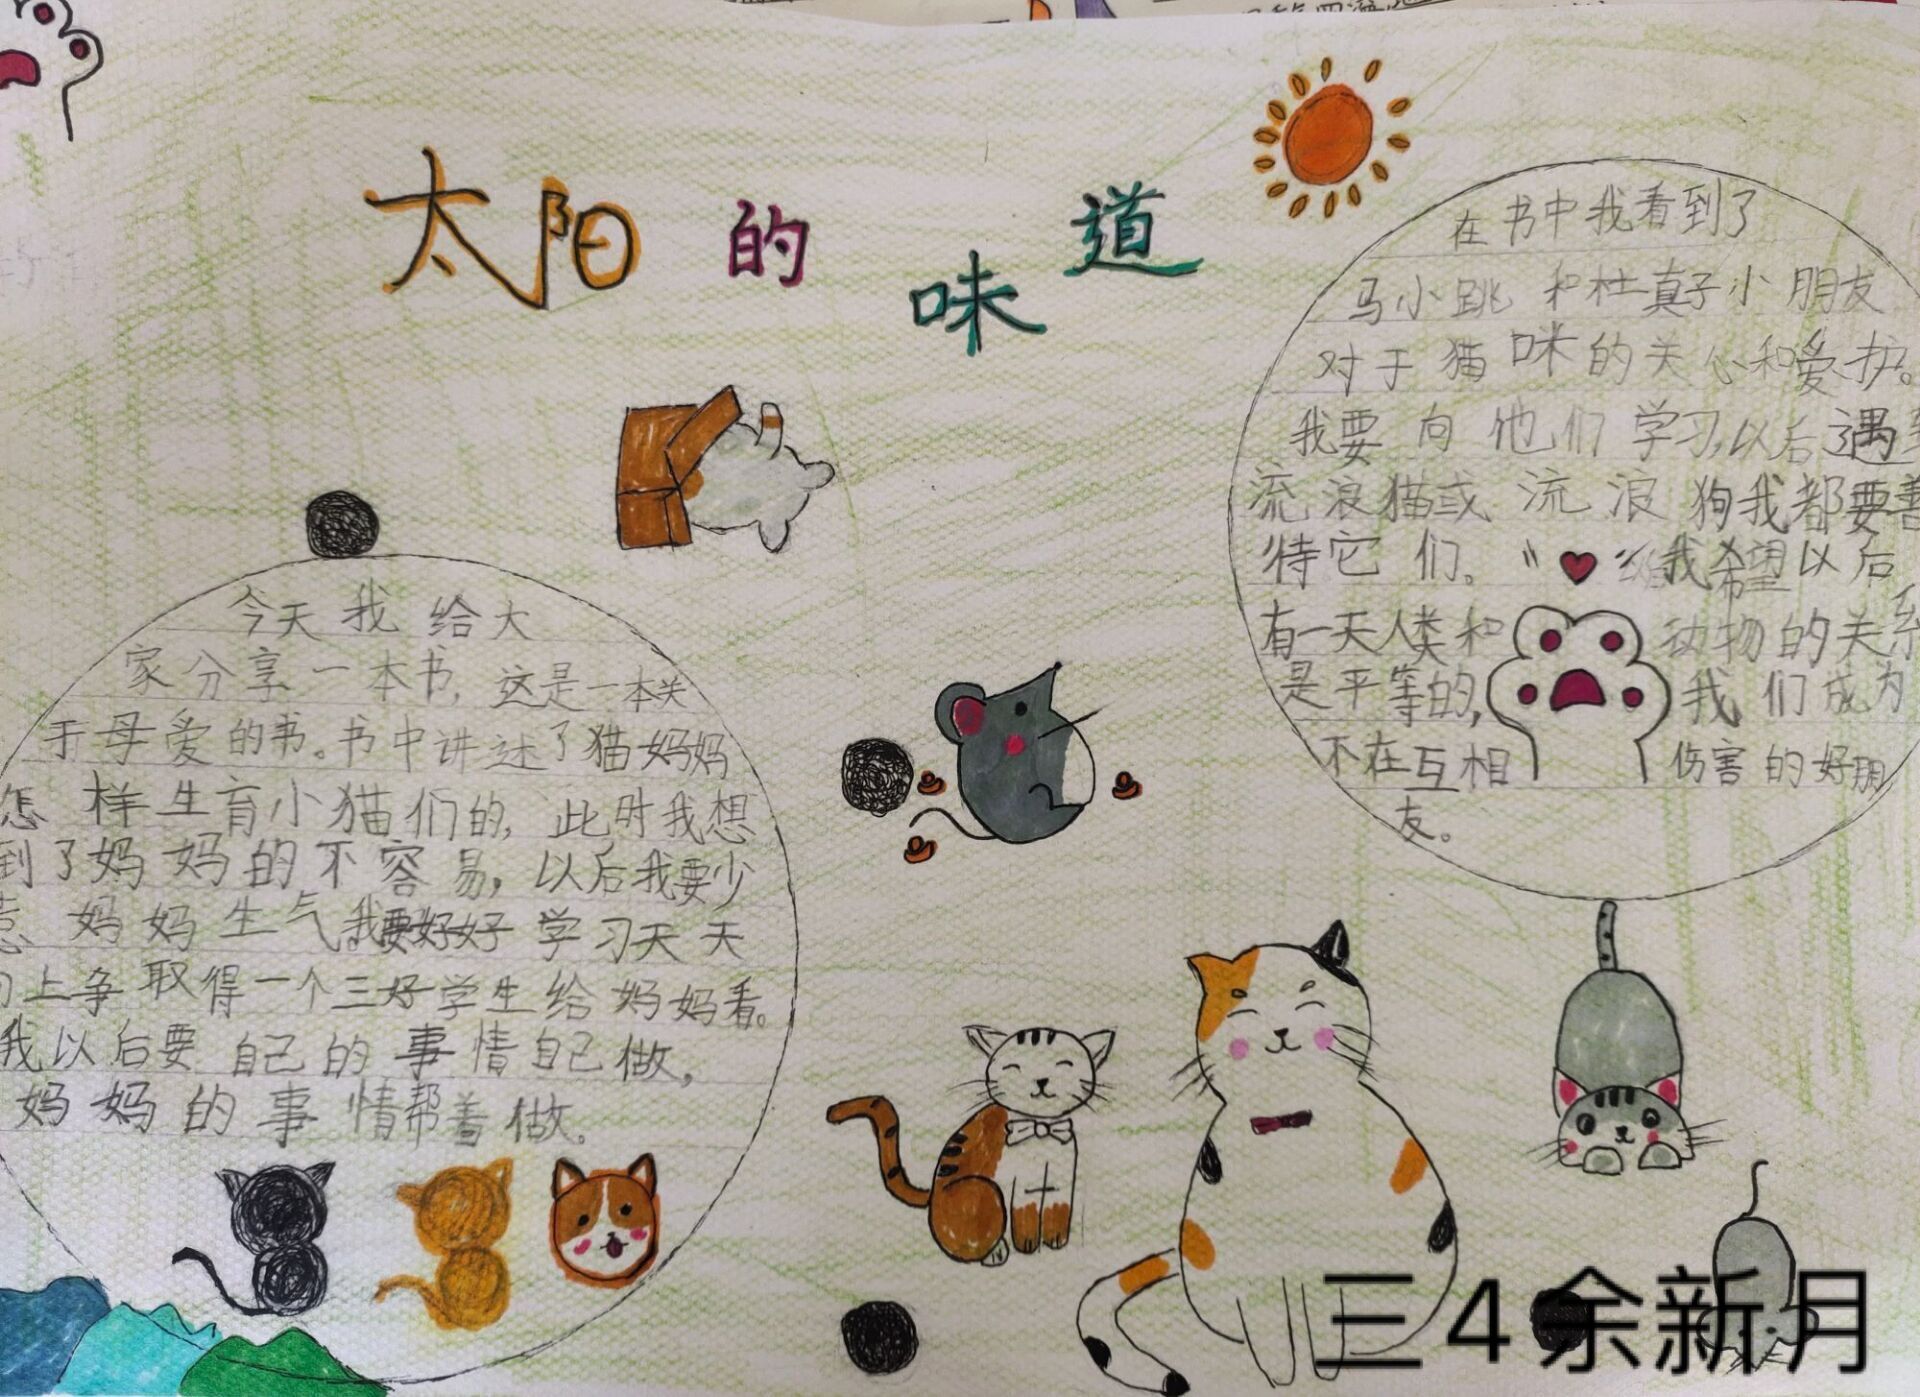 太阳的味道
在书中我看到了
马小跳和杜真子小朋友
对于猫咪的关心和爱护。
我要向他们学习,以后遇到
流浪猫或流浪狗我都要善
待它们。我希望以后
有一天人类和动物的关系
是平等的,我们成为
不在互相伤害的好朋
友。
今天我给大
家分享一本书,这是一本关
于母爱的书。书中讲述了猫妈妈
怎样生育小猫们的,此时我想
到了妈妈的不容易,以后我要少
惹妈妈生气。我要好好学习天天
向上争取得一个三好学生给妈妈看。
我以后要自己的事情自己做,
妈妈的事情帮着做。
三4余新月